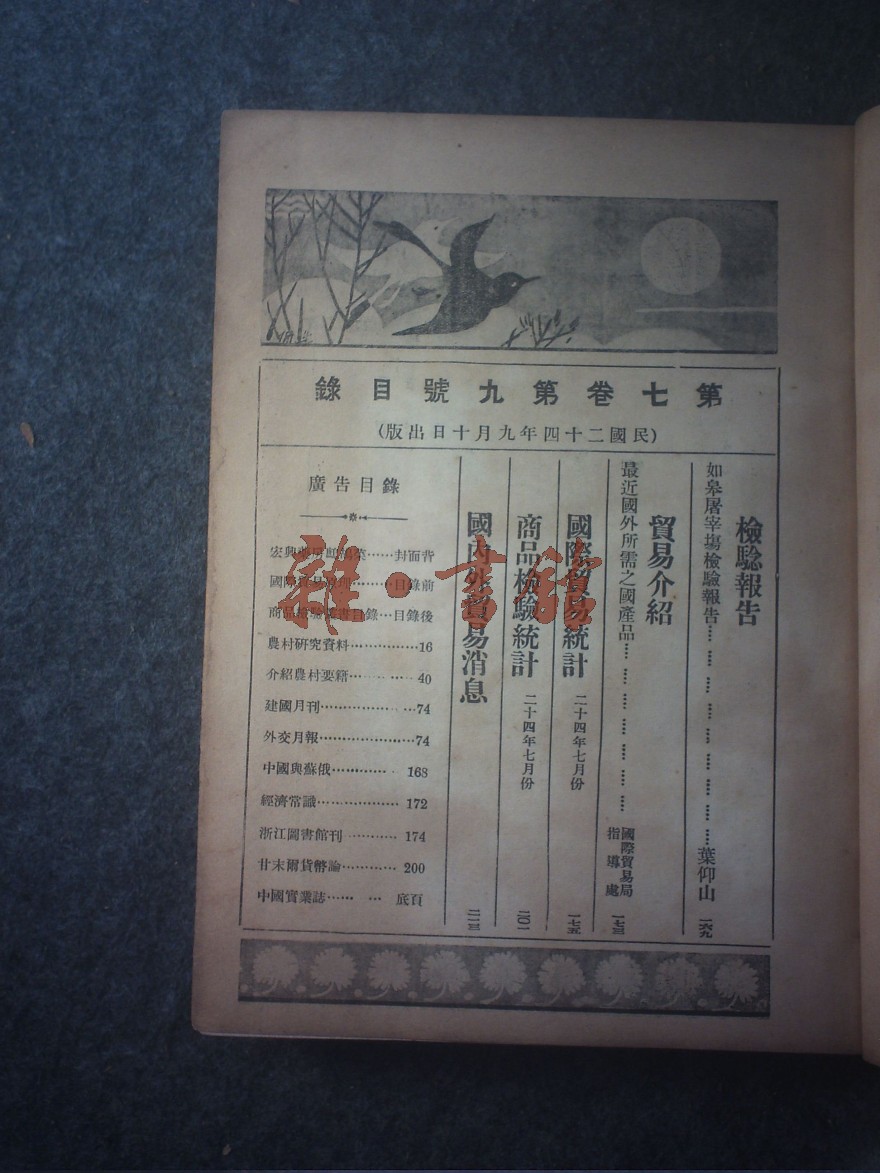 第七卷第九號目錄
(民國二十四年九月十日出版)
檢驗報告
如皋屠宰塲檢驗報告……葉仰山 一六九
貿易介紹
最近國外所需之國產品……國際貿易局指導處 一七三
國際貿易統計 二十四年七月份 一七五
商品檢驗統計 二十四年七月份 二〇一
國內外貿易消息 二一三
廣告目錄
宏興……封面背
國際貿易……目錄前
商品檢驗 目錄…目錄後
農村研究資料……16
介紹農村要籍……40
建國月刊……74
外交月報……74
中國與蘇俄……168
經濟常識……172
浙江圖書館刊……174
甘末爾貨幣論……200
中國實業誌……底頁
雜·書館